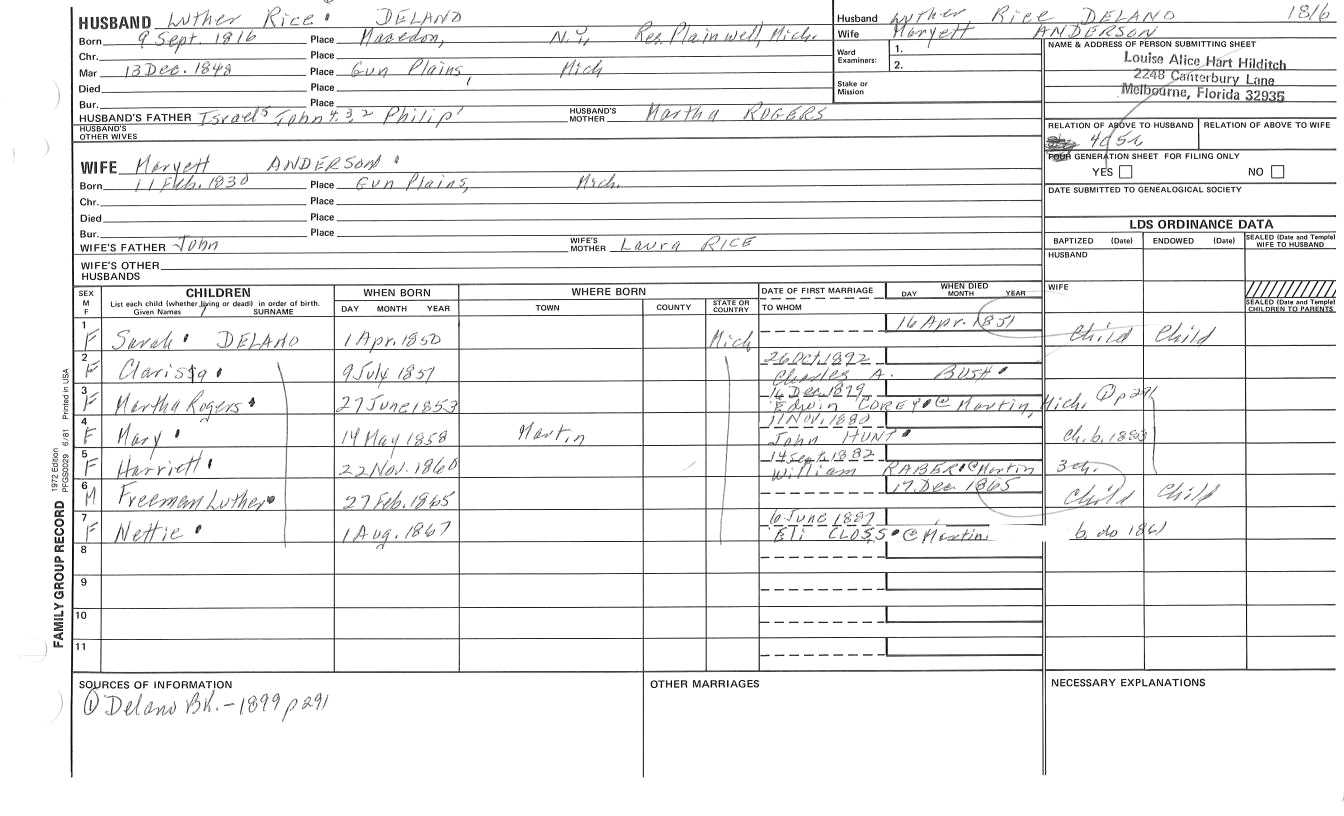 HUSBAND Luther Rice DELANO
Born 9 Sept. 1816 Place Macedon, N.Y, Res. Plainwell, Mich.
Chr. Place
Mar 13 Dec. 1848 Place Gun Plains, Mich
Died Place
Bur. Place
HUSBAND'S FATHER Israel5 John4,3,2 Philip1 HUSBAND'S MOTHER Martha ROGERS
HUSBAND'S OTHER WIVES
WIFE Maryett ANDERSON
Born 11 Feb. 1830 Place Gun Plains, Mich.
Chr. Place
Died Place
Bur. Place
WIFE'S FATHER John WIFE'S MOTHER Laura RICE
WIFE'S OTHER HUSBANDS
Husband Luther Rice DELANO 1816
Wife Maryett ANDERSON
Ward Examiners: 1.
2.
Stake or Mission
NAME & ADDRESS OF PERSON SUBMITTING SHEET
Louise Alice Hart Hilditch
2248 Canterbury Lane
Melbourne, Florida 32935
RELATION OF ABOVE TO HUSBAND RELATION OF ABOVE TO WIFE
FOUR GENERATION SHEET FOR FILING ONLY
YES NO
DATE SUBMITTED TO GENEALOGICAL SOCIETY
LDS ORDINANCE DATA
BAPTIZED (Date) ENDOWED (Date) SEALED (Date and Temple) WIFE TO HUSBAND
HUSBAND
WIFE
SEALED (Date and Temple) CHILDREN TO PARENTS
SEX M F CHILDREN WHEN BORN WHERE BORN DATE OF FIRST MARRIAGE WHEN DIED
List each child (whether living or dead) in order of birth. Given Names SURNAME DAY MONTH YEAR TOWN COUNTY STATE OR COUNTRY TO WHOM DAY MONTH YEAR
1 F Sarah DELANO 1 Apr. 1850 Mich 16 Apr. 1851 Child Child
2 F Clarissa 9 July 1851 26 Oct. 1892 Charles A. BUSH
3 F Martha Rogers 27 June 1853 16 Dec. 1879 Edwin COREY @ Martin, Mich. ① p 291
4 F Mary 14 May 1858 Martin 11 Nov. 1880 John HUNT Ch. b. 1883
5 F Harriett 22 Nov. 1860 14 Sept. 1882 William RABER @ Martin 3 ch.
6 M Freeman Luther 27 Feb. 1865 17 Dec 1865 Child Child
7 F Nettie 1 Aug. 1867 6 June 1887 Eli CLOSS @ Martin b. do 1861
8
9
10
11
SOURCES OF INFORMATION
① Delano BK. - 1899 p 291
OTHER MARRIAGES
NECESSARY EXPLANATIONS
FAMILY GROUP RECORD 1972 Edition PFGS0029 6/81 Printed in USA